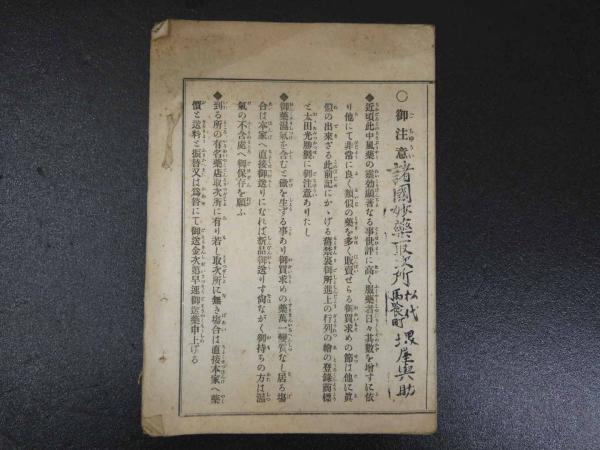 ○御注意
諸國妙藥取次所 松代
馬喰町
屋與助
◆近頃此中風藥の靈効顯著なる事世評に高く服藥者日々其數を增すに依
り他にて非常に良く類似の藥を多く販賣せらる御買求めの節は他に眞
似の出來ざる此前記にかゝげる舊禁裏御所進上の行列の繪の登錄商標
と太田光勝製に御注意ありたし
◆御藥濕氣を含むと黴を生する事あり御買求めの藥萬一變質なし居る塲
合は本家へ直接御送りになれば新品御送りす尙ながく御持ちの方は濕
氣の不含處へ御保存を願ふ
◆到る所の有名藥店取次所に有り若し取次所に無き塲合は直接本家へ藥
價と送料と振替又は爲替にて御送金次第早速御送藥申上げる